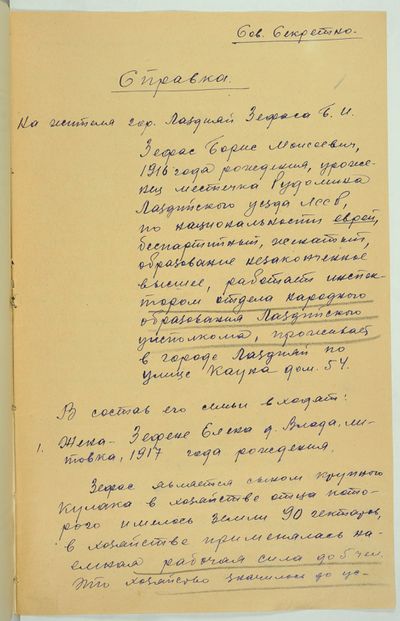 Сов. Секретно.
Справка.
На жителя гор. Лаздияй Зефаса Б. И.
Зефас Борис Моисеевич,
1916 года рождения, уроже-
нец местечка Рудомина
Лаздийского уезда ЛССР,
по национальности еврей,
беспартийный, женатый,
образование незаконченное
высшее, работает инспек-
тором отдела народного
образования Лаздийского
исполкома, проживает
в городе Лаздияй по
улице Кауна дом. 54.
В состав его семьи входят:
1. Жена - Зефене д. Влада, ли-
товка, 1917 года рождения.
Зефас является сыном крупного
кулака в хозяйстве отца кото-
рого имелось земли 90 гектаров,
в хозяйстве применялась на-
емная рабочая сила до 5 чел.
Это хозяйство значилось до ус-